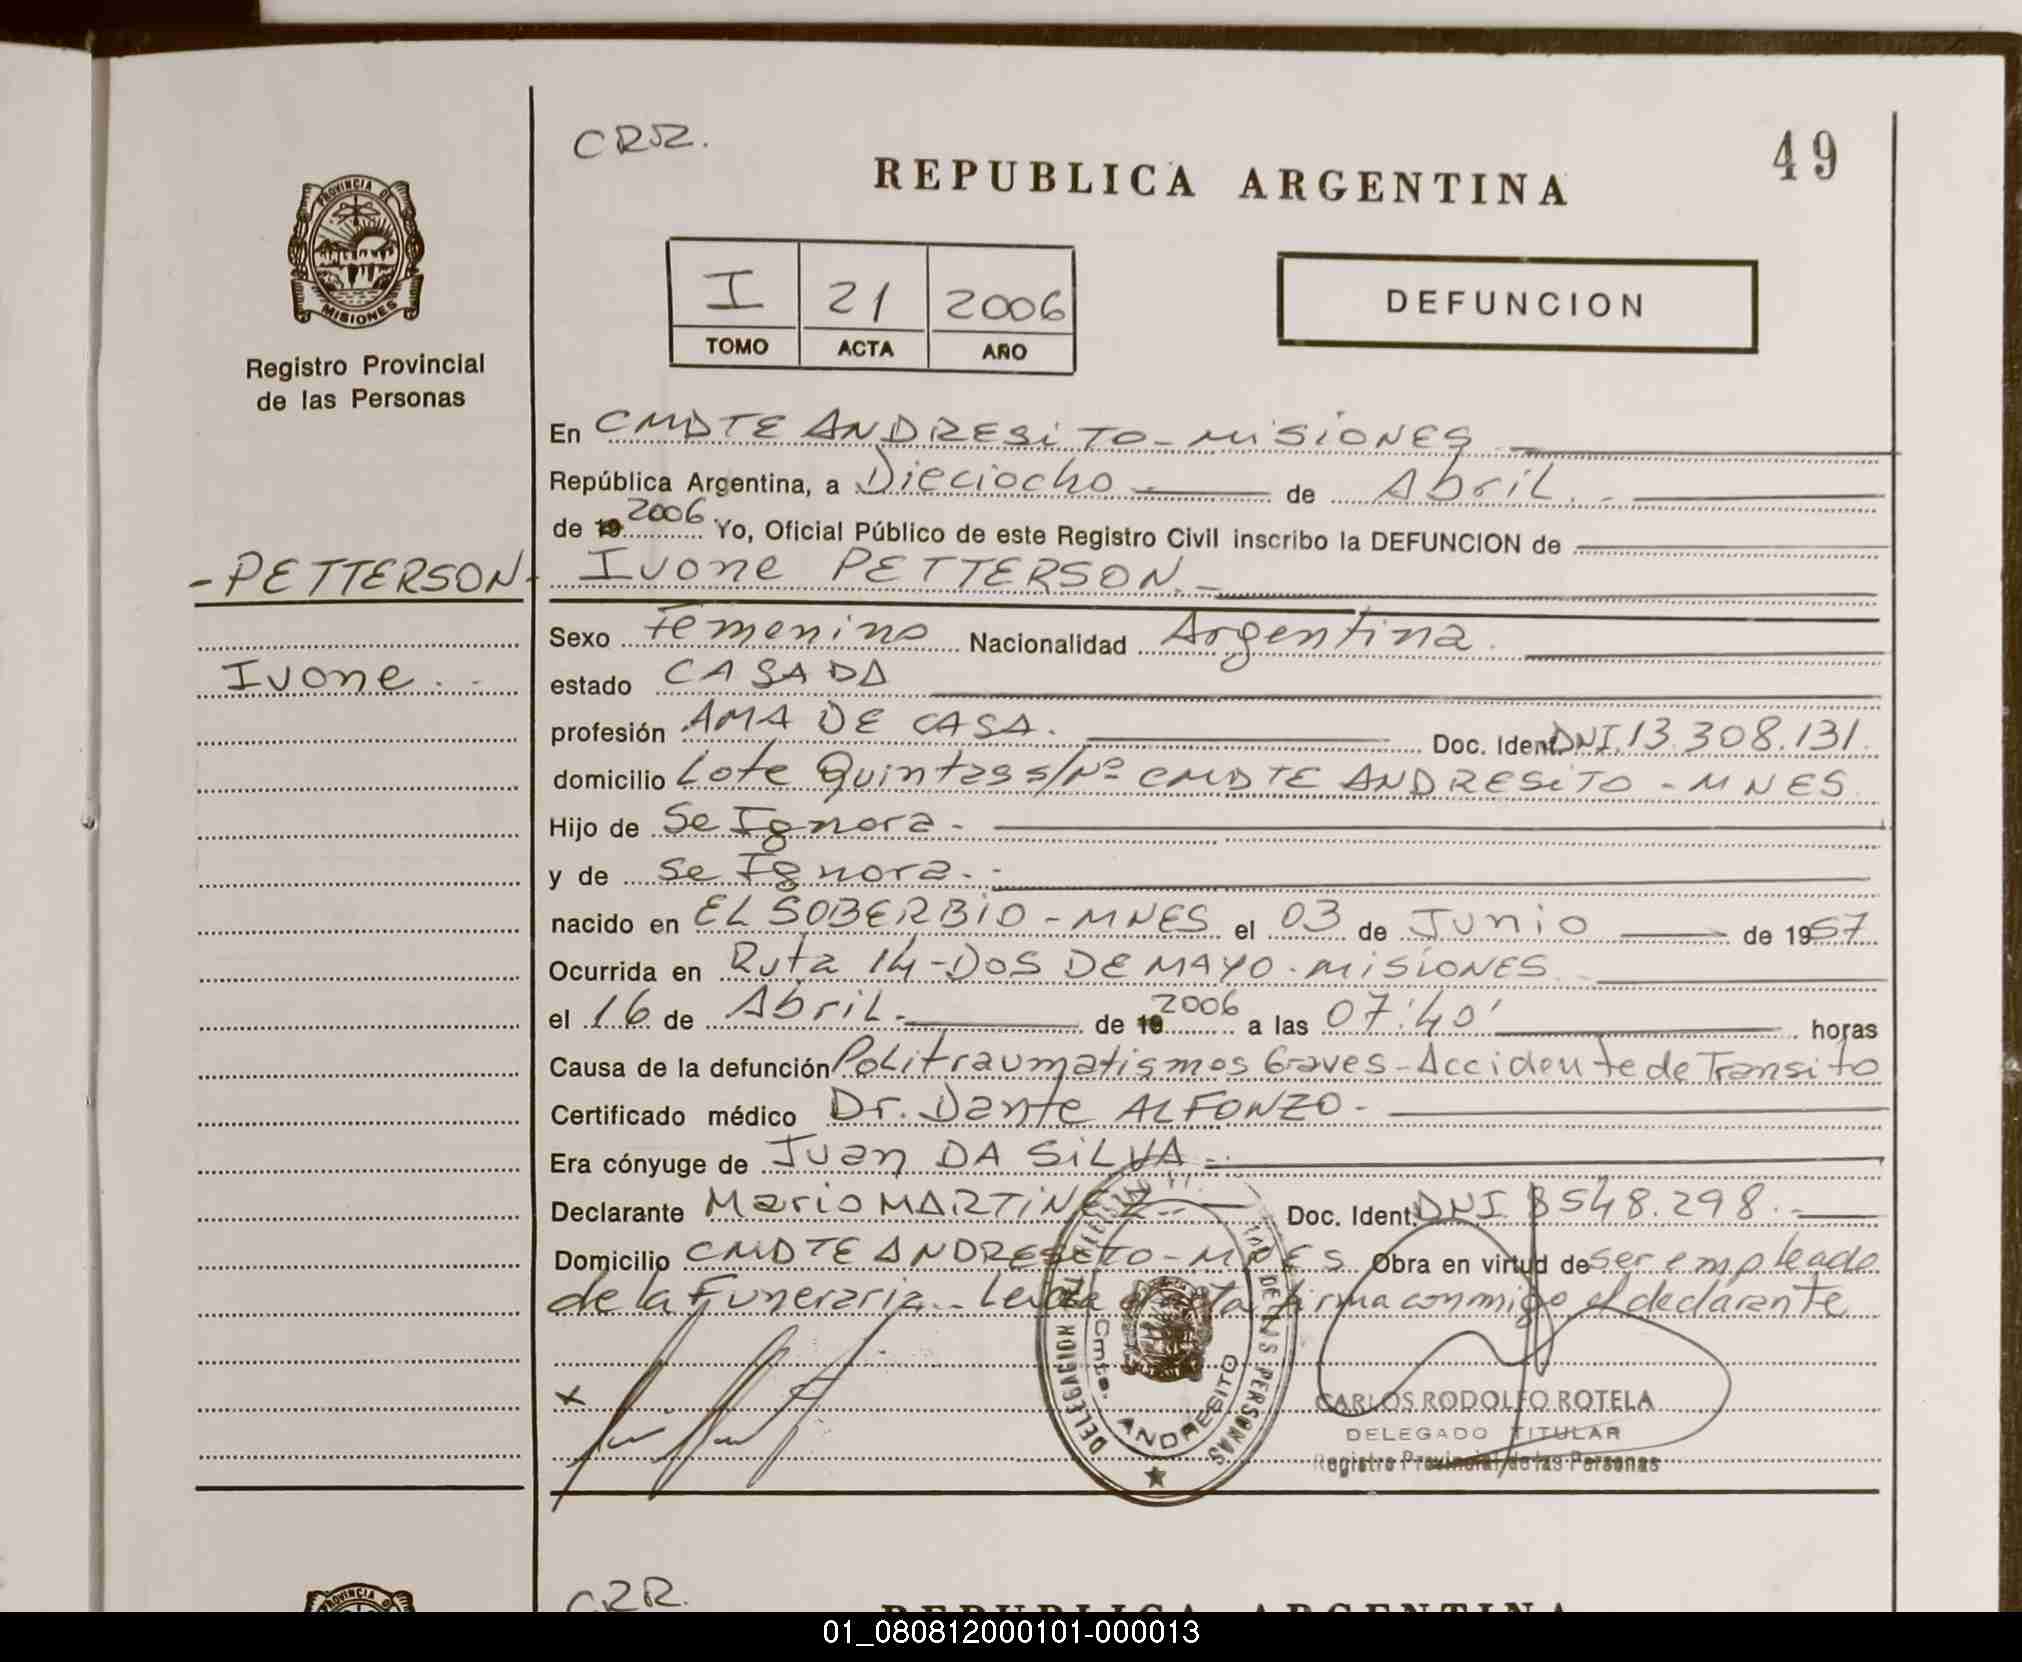 CRR.
49
REPUBLICA ARGENTINA
PROVINCIA DE
MISIONES
I 21 2006
TOMO ACTA AÑO
DEFUNCION
Registro Provincial
de las Personas
En CMDTE ANDRESiTO - MiSiONES
República Argentina, a Dieciocho de Abril.
de 19 2006 Yo, Oficial Público de este Registro Civil inscribo la DEFUNCION de
- PETTERSON - Ivone PETTERSON.
Sexo Femenino Nacionalidad Argentina.
Ivone estado CASADA
profesión AMA DE CASA. Doc. Ident. DNI. 13.308.131.
domicilio Lote Quintas s/Nº CMDTE ANDRESiTO - MNES
Hijo de Se Ignora.
y de Se Ignora.
nacido en EL SOBERBiO - MNES el 03 de Junio de 1957
Ocurrida en Ruta 14 - DOS DE MAYO. MiSiONES
el 16 de Abril. de 19 2006 a las 07:40' horas
Causa de la defunción Politraumatismos Graves - Accidente de Transito
Certificado médico Dr. Dante ALFONZO -
Era cónyuge de Juan DA SiLVA
Declarante Mario MARTiNEZ Doc. Ident. DNI 8548.298.
Domicilio CMDTE ANDRESiTO - MNES Obra en virtud de ser empleado
de la Funeraria. Leida el acta firma conmigo el declarante
x
DELEGACION
DE LAS PERSONAS
Cmte. ANDRESITO
CARLOS RODOLFO ROTELA
DELEGADO TITULAR
Registro Provincial de las Personas
CRR.
PROVINCIA D
REPUBLICA ARGENTINA
01_080812000101-000013